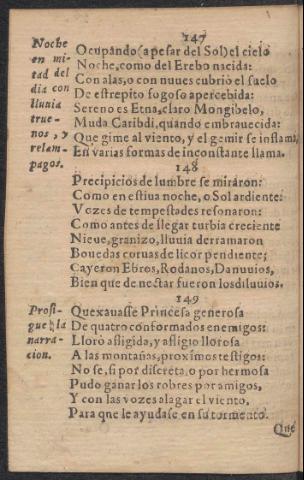 147
Noche en mitad del dia con lluuia truenos, y relampagos.
Ocupando (a pesar del Sol) el cielo
Noche, como del Erebo nacida:
Con alas, o con nuues cubrio el suelo
De estrepito fogoso apercebida:
Sereno es Etna, claro Mongibelo,
Muda Caribdi, quando embrauecida:
Que gime al viento, y el gemir se inflama,
En varias formas de inconstante llama.
148
Precipicios de lumbre se miraron:
Como en estiua noche, o Sol ardiente:
Vozes de tempestades resonaron:
Como antes de llegar turbia creciente
Nieue, granizo, lluuia derramaron
Bouedas coruas de licor pendiente;
Cayeron Ebros, Rodanos, Danuuios,
Bien que de nestar fueron los diluuios.
149
Prosigue la narracion.
Quexauasse Princesa generosa
De quatro conformados enemigos:
Lloró afligida, y afligio llorosa
A las montañas, proximos testigos:
No se, si por discreta, o por hermosa
Pudo ganar los robres por amigos,
Y con las vozes alagar el viento,
Para que le ayudase en su tormento.
Que